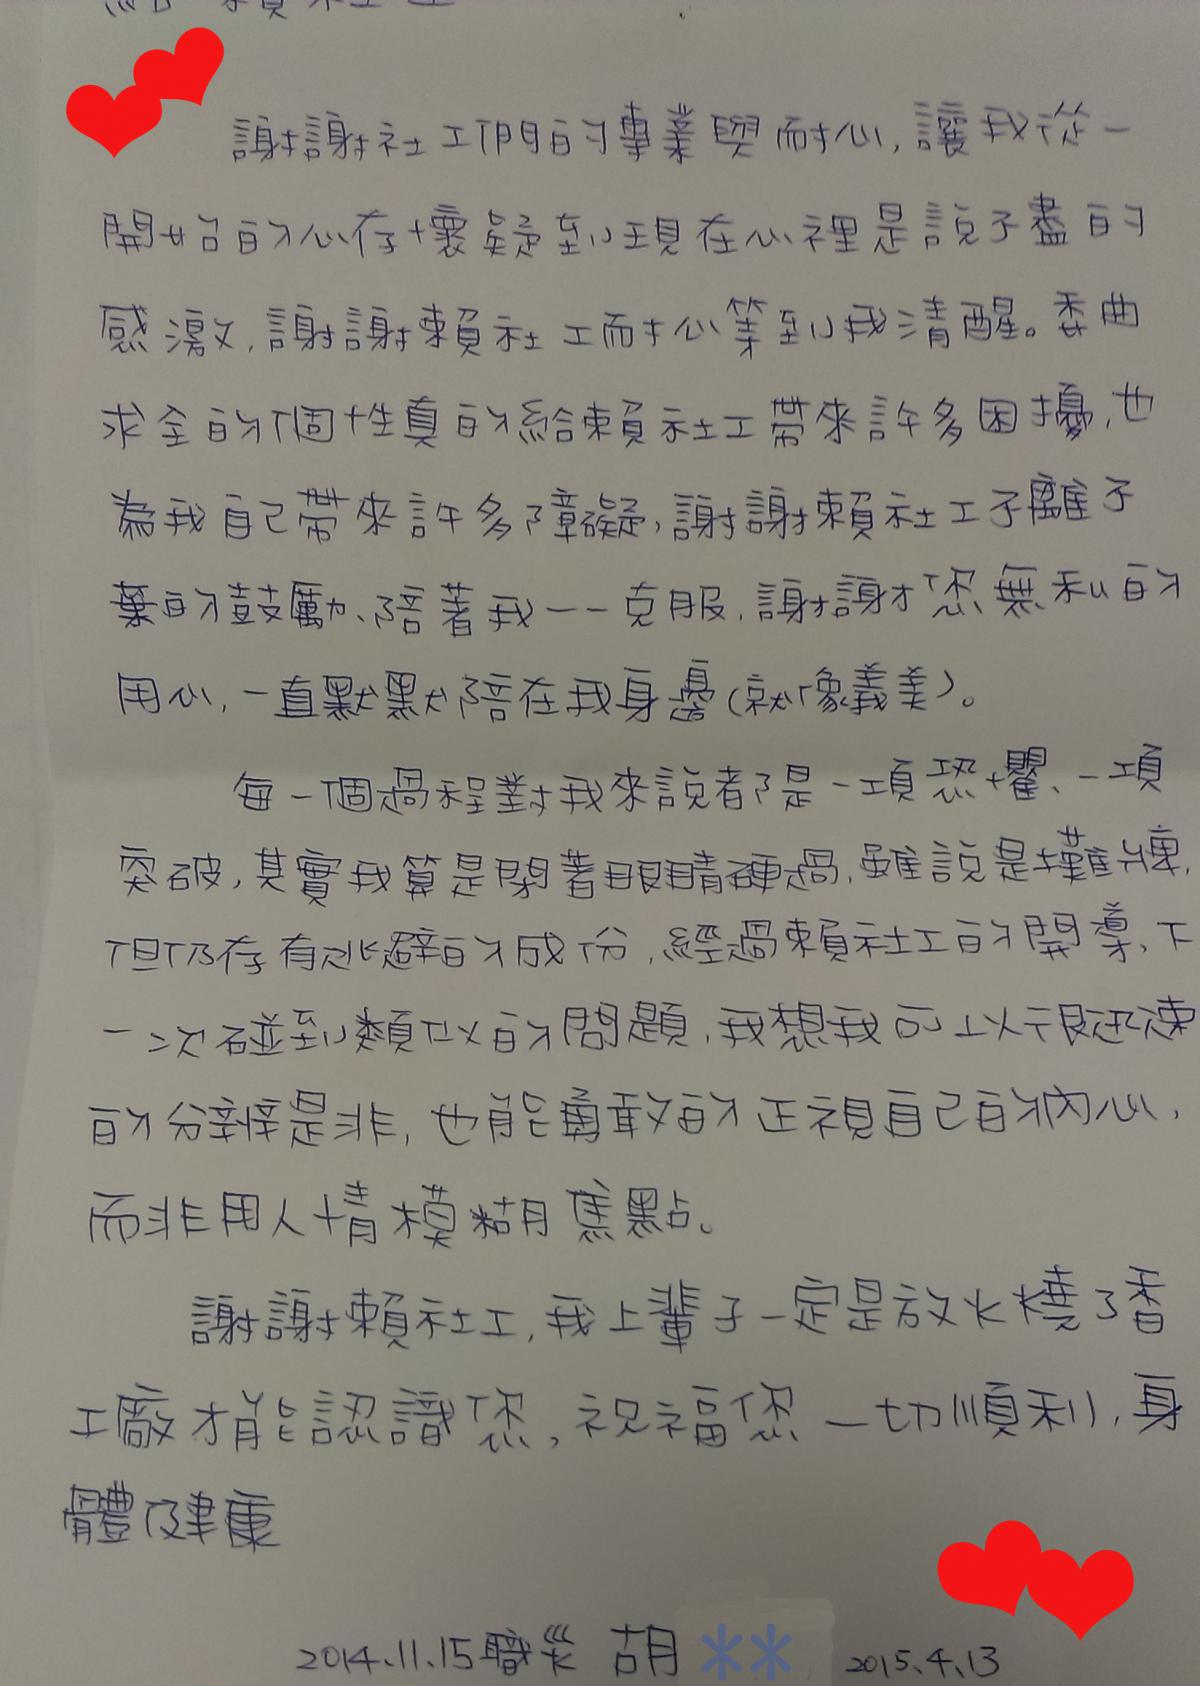 給 賴社工
謝謝社工們的專業與耐心,讓我從一
開始的心存懷疑到現在心裡是說不盡的
感激,謝謝賴社工耐心等到我清醒。委曲
求全的個性真的給賴社工帶來許多困擾,也
為我自己帶來許多障礙,謝謝賴社工不離不
棄的鼓勵、陪著我一一克服,謝謝您無私的
用心,一直默默陪在我身邊(就像義美)。
每一個過程對我來說都是一項恐懼、一項
突破,其實我算是閉著眼睛硬過,雖說是攤牌,
但仍存有逃避的成份,經過賴社工的開導,下
一次碰到類似的問題,我想我可以很迅速
的分辨是非,也能勇敢的正視自己的內心,
而非用人情模糊焦點。
謝謝賴社工,我上輩子一定是放火燒了香
工廠才能認識您,祝福您一切順利,身
體健康
2014.11.15職災 胡** 2015.4.13